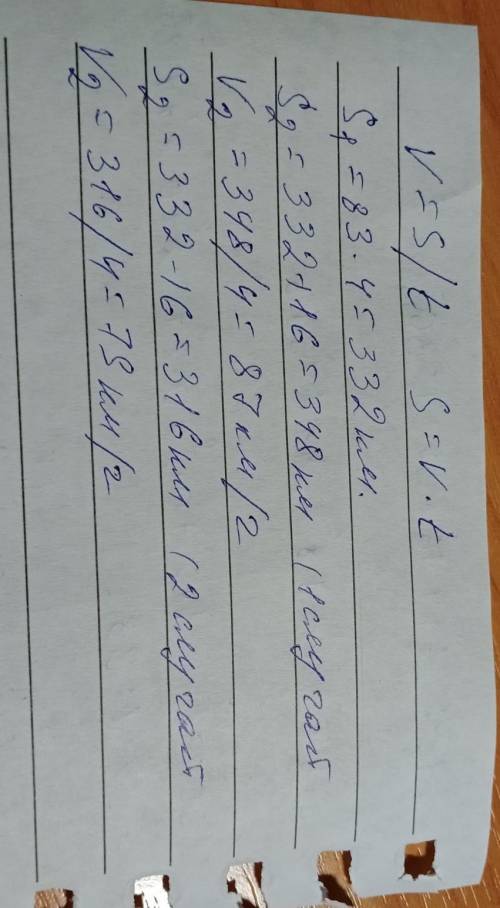 V = S/t   S = V · t
S₁ = 83 · 4 = 332 км.
S₂ = 332 + 16 = 348 км (1 случай
V₂ = 348/4 = 87 км/г
S₂ = 332 - 16 = 316 км (2 случай
V₂ = 316/4 = 79 км/г